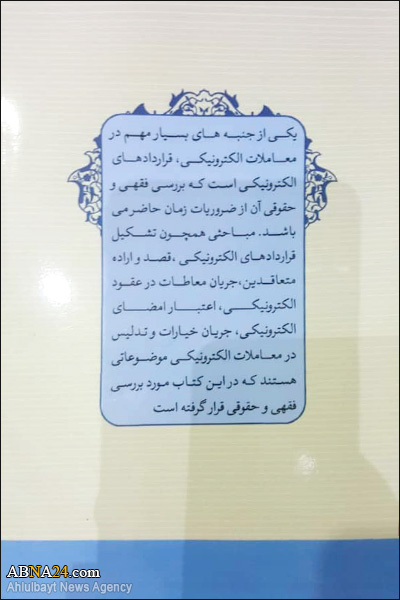 یکی از جنبه های بسیار مهم در
معاملات الکترونیکی، قراردادهای
الکترونیکی است که بررسی فقهی و
حقوقی آن از ضروریات زمان حاضر می
باشد. مباحثی همچون تشکیل
قراردادهای الکترونیکی ،قصد و اراده
متعاقدین،جریان معاطات در عقود
الکترونیکی، اعتبار امضای
الکترونیکی، جریان خیارات و تدلیس
در معاملات الکترونیکی موضوعاتی
هستند که در این کتاب مورد بررسی
فقهی و حقوقی قرار گرفته است
ABNA24.com
Ahlulbayt News Agency